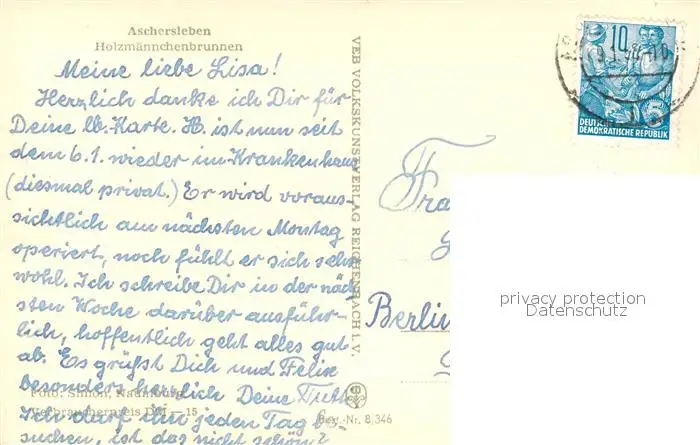 Aschersleben
Holzmännchenbrunnen
Meine liebe Lisa!
Herzlich danke ich Dir für
Deine lb. Karte. H. ist nun seit
dem 6.1. wieder im Krankenhaus
(diesmal privat.) Er wird voraus-
sichtlich am nächsten Montag
operiert, noch fühlt er sich sehr
wohl. Ich schreibe Dir in der näch-
sten Woche darüber ausführ-
lich, hoffentlich geht alles gut
ab. Es grüßt Dich und Felix
besonders herzlich Deine Truth
Foto: Simon, Naumburg
Verbraucherpreis DM —15
Ich darf ihn jeden Tag be-
suchen, ist das nicht schön?
Best.-Nr. 8/346
VEB VOLKSKUNSTVERLAG REICHENBACH i. V.
10
5
DEUTSCHE
DEMOKRATISCHE REPUBLIK
Fra
Berlin
privacy protection
Datenschutz